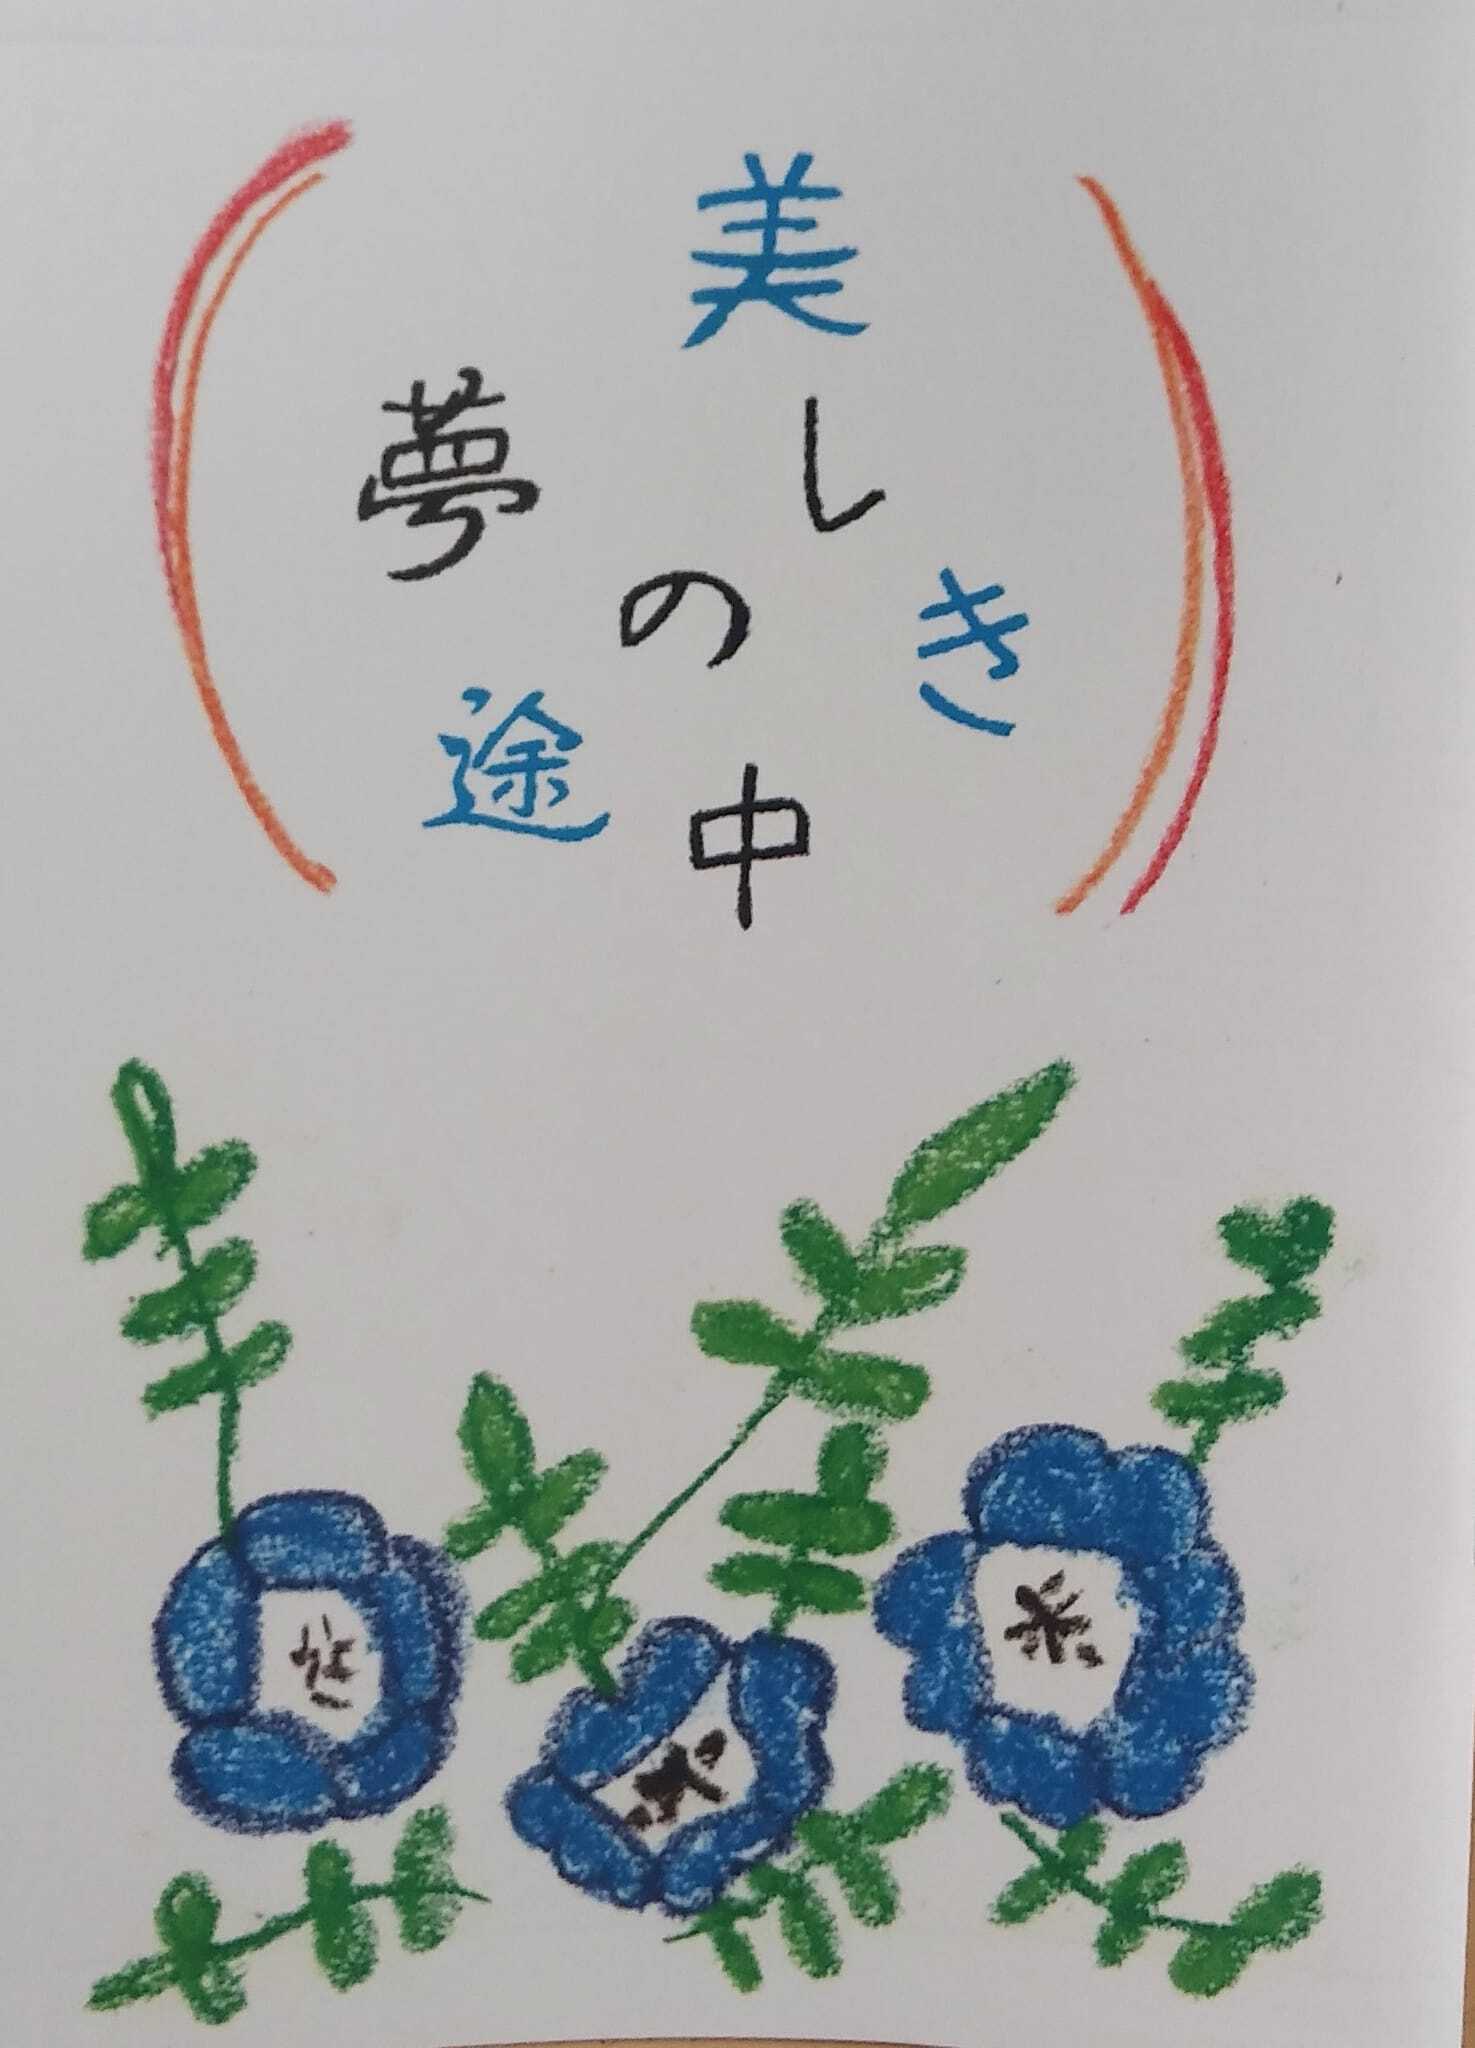 美しき
夢の中
途